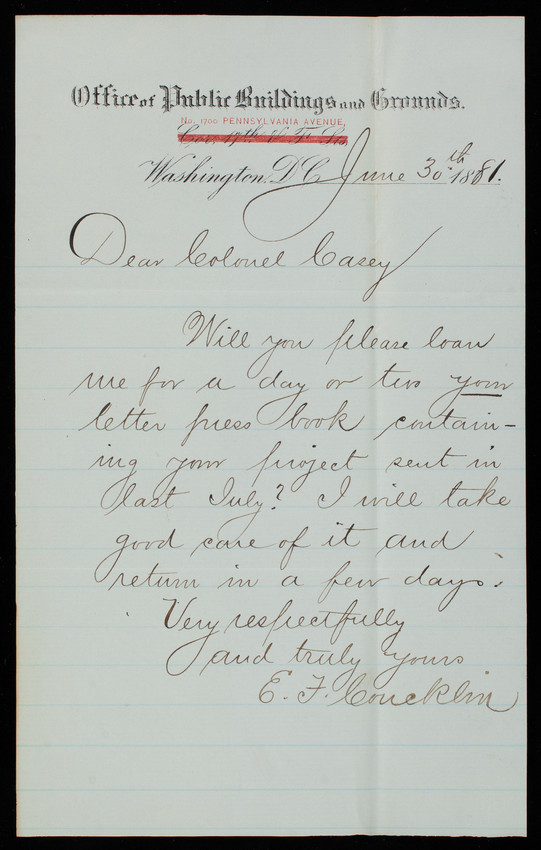 Office of Public Buildings and Grounds.
No. 1700 PENNSYLVANIA AVENUE,
Cor. 17th & F Sts
Washington, D.C. June 30th 1881.
Dear Colonel Casey
Will you please loan
me for a day or two your
letter press book contain-
ing your project sent in
last July? I will take
good care of it and
return in a few days.
Very respectfully
and truly yours
E. F. Concklin